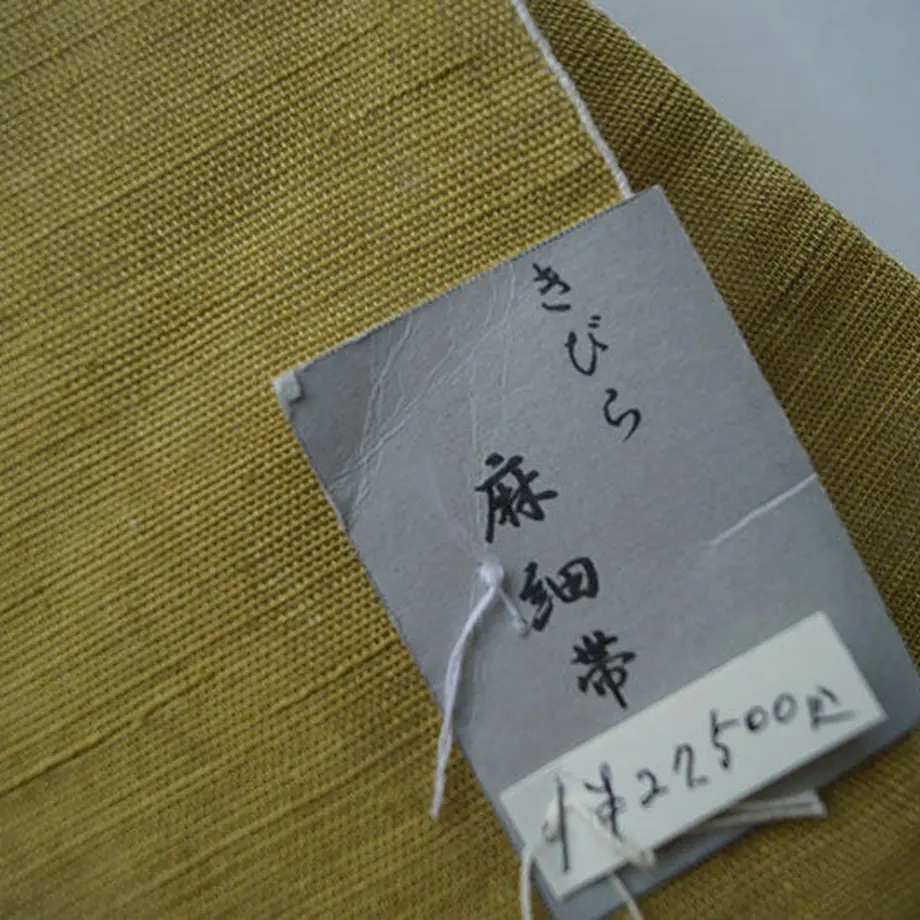 きびら
麻細帯
1本27,500円